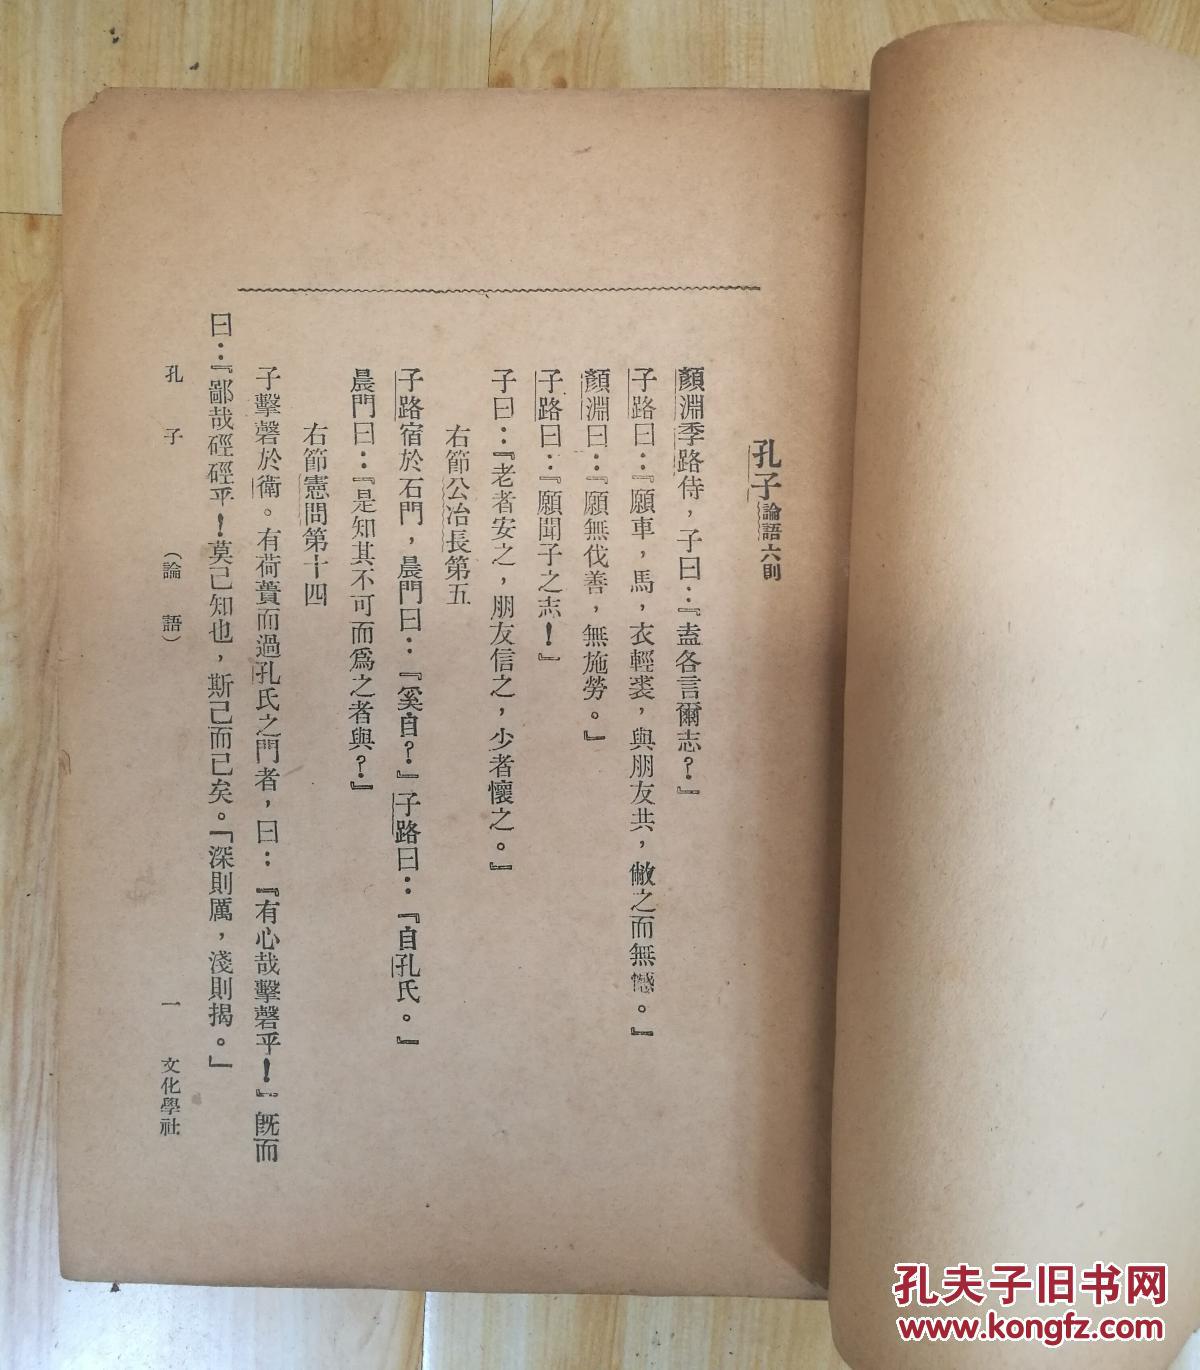 孔子論語六則
顏淵季路侍，子曰：『盍各言爾志？』
子路曰：『願車，馬，衣輕裘，與朋友共，敝之而無憾。』
顏淵曰：『願無伐善，無施勞。』
子路曰：『願聞子之志！』
子曰：『老者安之，朋友信之，少者懷之。』
右節公冶長第五
子路宿於石門，晨門曰：『奚自？』子路曰：『自孔氏。』
晨門曰：『是知其不可而爲之者與？』
右節憲問第十四
子擊磬於衛。有荷蕢而過孔氏之門者，曰：『有心哉擊磬乎！』既而
曰：『鄙哉硜硜乎！莫己知也，斯己而已矣。「深則厲，淺則揭。」
孔子（論語） 一 文化學社
孔夫子旧书网
www.kongfz.com